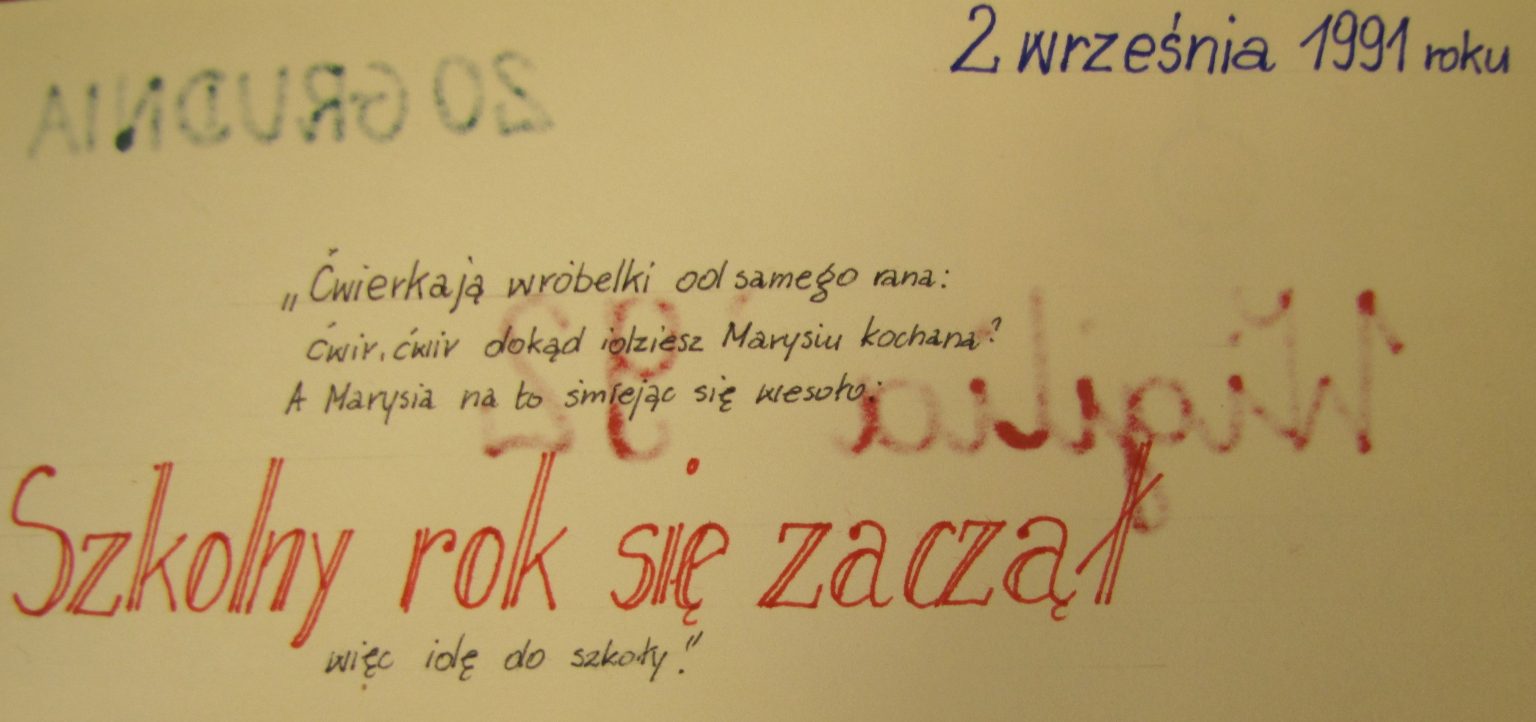 2 września 1991 roku
20 GRUDNIA
„Ćwierkają wróbelki od samego rana:
Ćwir, ćwir dokąd idziesz Marysiu kochana?
A Marysia na to śmiejąc się wesoło:
Wigilia '92
Szkolny rok się zaczął
więc idę do szkoły."